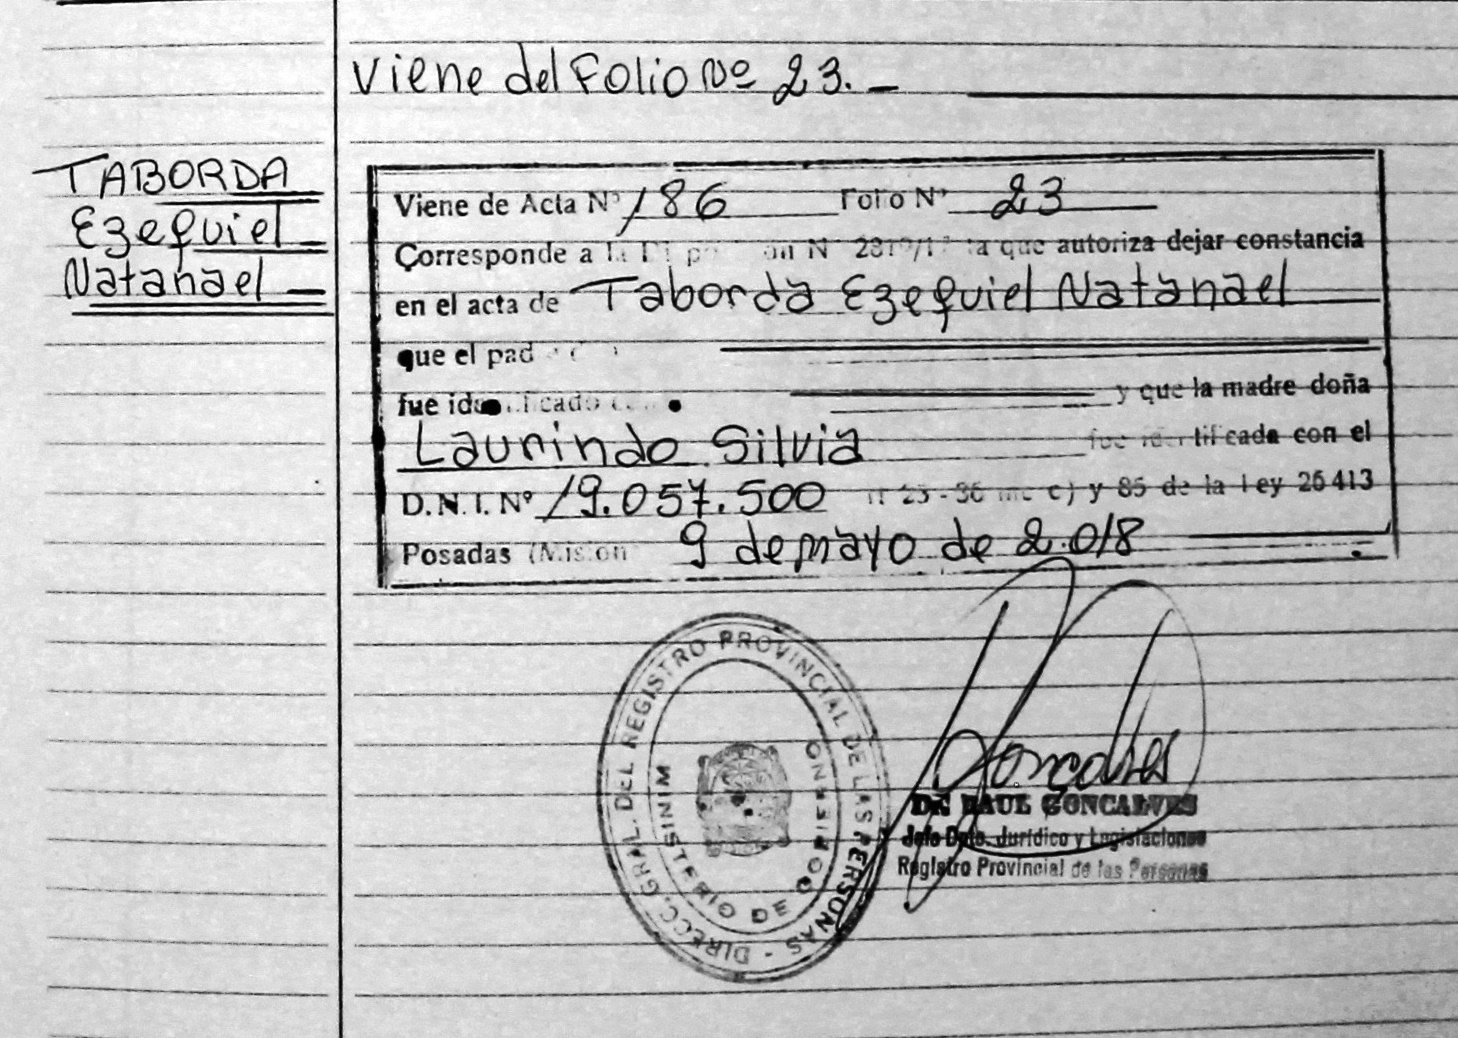 Viene del Folio Nº 23. —
TABORDA
Ezequiel
Natanael
Viene de Acta Nº 186 Folio Nº 23
Corresponde a la N 2819/1 la que autoriza dejar constancia
en el acta de Taborda Ezequiel Natanael
que el pad
fue identificado y que la madre doña
Laurindo Silvia fue identificada con el
D.N.I. Nº 19.057.500 25 - 36 inc c) y 85 de la Ley 26 413
Posadas (Mision 9 de mayo de 2.018
DIRECC. GRAL. DEL REGISTRO PROVINCIAL DE LAS PERSONAS -
MINISTERIO DE GOBIERNO
Gonçalves
Dr. RAUL GONCALVES
Jefe Dpto. Jurídico y Legislaciones
Registro Provincial de las Personas